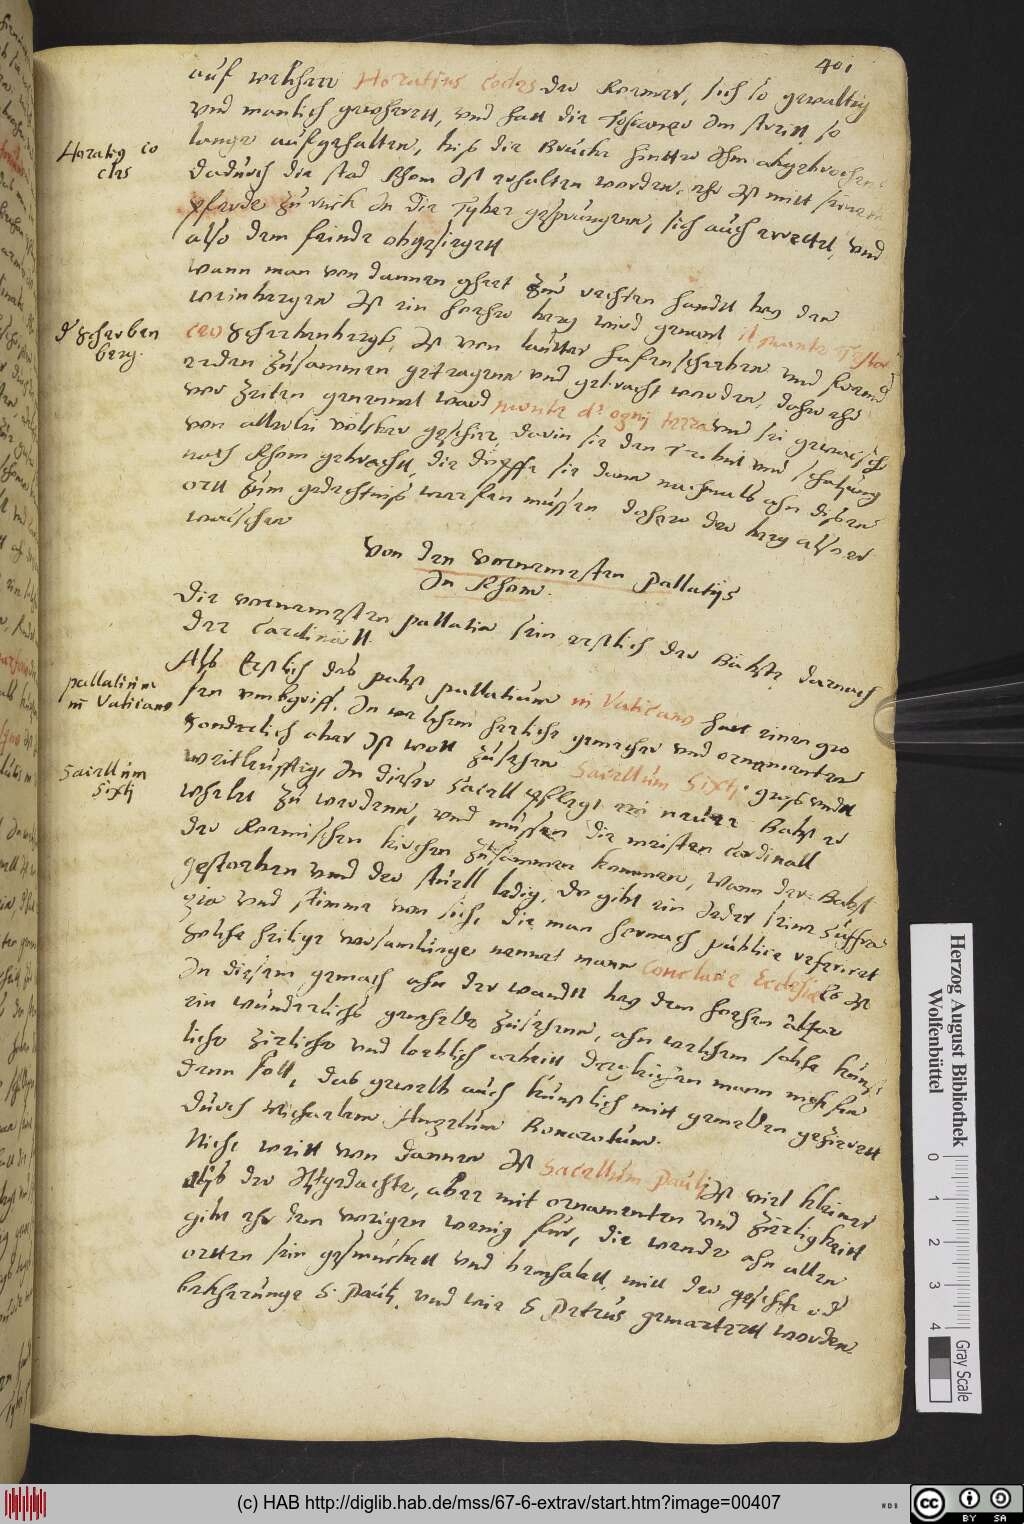 401
auf welcher Horatius Cocles der Roemer, sich so gewaltig
vnd manlich gewehrett, vnd hatt die Toscaner Im streitt so
Horatius co
cles
lange aufgehalten, biss die Brücke hintter Ihm abgebrochen
dadurch die stad Rhom Ist erhalten worden, ehr Ist mitt seinem
pferde zu rück In die Tyber gesprungenn, sich auch errettet, vnd
also dem feinde obgesiegett
wann man von dannen gehet zur rechten handtt beÿ den
weinbergen Ist ein hoher berg wird genant il monte Testa
d' scherben
berg.
ceo scherbenbergk, Ist von lautter hafenscherben vnd fremder
erden zusammen getragenn vnd gebracht worden, daher ehr
vor zeiten genennet ward monte d' ogni terra vnd seÿ gewesen
von allerleÿ völcker geschirr, darin sie den Tribut vnd schatzung
nach Rhom gebrachtt, die döpffe sie dann nachmals ahn dissen
ortt zum gedechtniss werfen müssen daher der berg also er
wachsen
Von den vornemesten Pallatijs
In Rhom.
Die vornemesten pallatia sein erstlich der Bäbste darnach
der Cardinäll.
Alss Erstlich dess pabst pallatium in Vaticano hatt einen gro
pallatium
in Vaticano
sen vmbgriff. In welchem herliche gemecher vnd ornamenten
sonderlich aber Ist woll zusehen Sacellum Sixti, gross vndt
sacellum
Sixti
weitleufftig, In dieser Sacell pflegt ein neuer Babst er
wehlet zu werdenn, vnd müssen die meisten Cardinall
der Roemischen kirchen zusammen kommen, Wann der Babst
gestorben vnnd der stuell ledig, do gibt ein Jeder seine suffra
gia vnd stimme von sich, die man hernach publice referiret
solche heilige versamlunge nennet mann Conclave Ecclesiae Es Ist
In diesem gemach ahn der wandtt beÿ dem hohen altar
ein wunderlichs gemelde zusehenn, ahn welchem solche künst
liche zierliche vnd loeblich arbeitt dergleichen mann nicht fin
denn soll, das gewelb auch künstlich mitt gemelden gezierett
durch Michaelem Angelum Bonarotum.
Nicht weitt von dannen Ist Sacellum Pauli, Ist viel kleiner
alss der Itzgedachte, aber mit ornamenten vnd zierligkeitt
gibt ehr dem vorigen wenig für, die wende ahn allen
ortten sein geschmückett vnd bemahlett, mitt der geschichte vd
bekherunge S. Pauli, vnd wie S Petrus gemartertt worden.
Herzog August Bibliothek
Wolfenbüttel
0 1 2 3 4
Gray Scale
(c) HAB http://diglib.hab.de/mss/67-6-extrav/start.htm?image=00407
WDB
CC BY SA